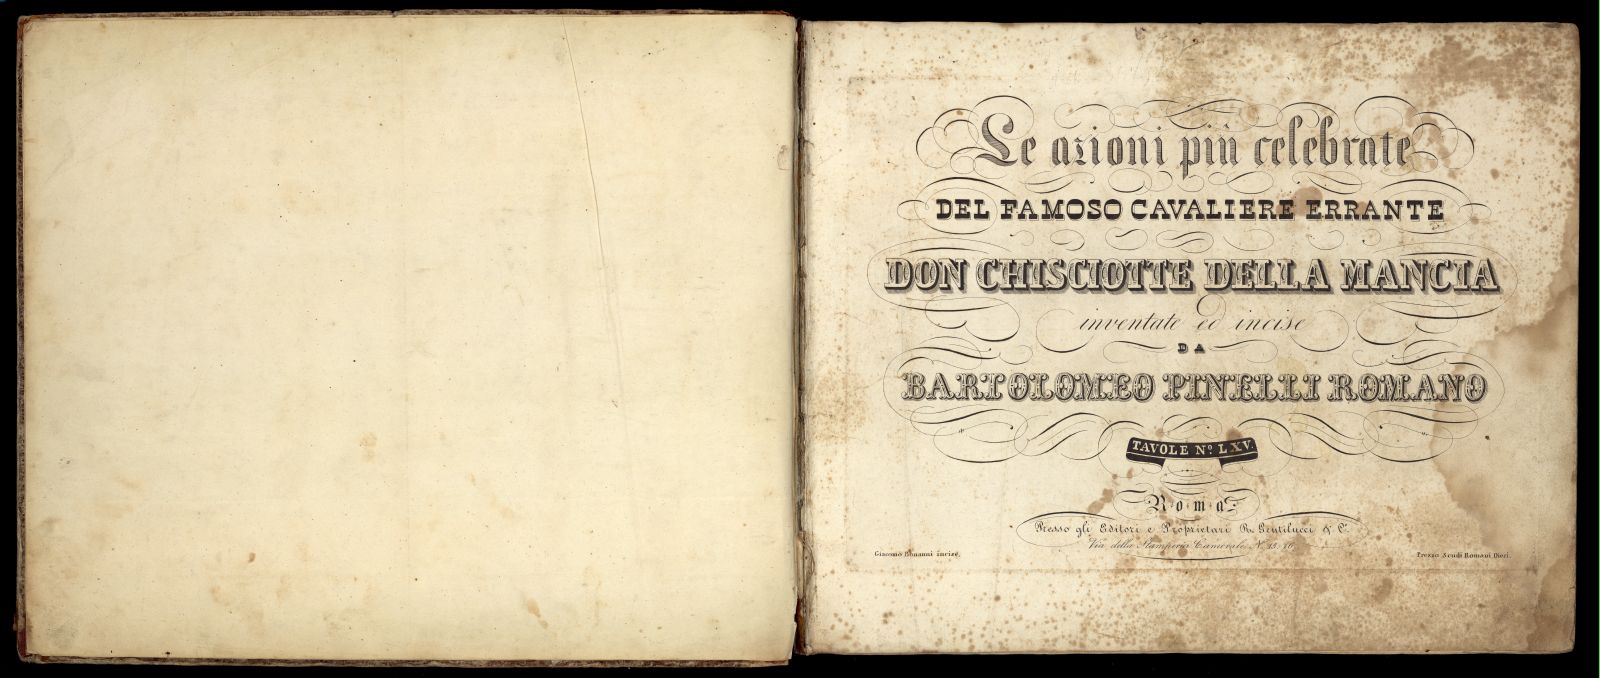 Le azioni più celebrate
DEL FAMOSO CAVALIERE ERRANTE
DON CHISCIOTTE DELLA MANCIA
inventate ed incise
DA
BARTOLOMEO PINELLI ROMANO
TAVOLE Nº LXV.
Roma
Presso gli Editori e Proprietari R. Gentilucci & C.
Via della Stamperia Camerale N.
Giacomo Bonanni incise.
Prezzo Scudi Romani Dieci.